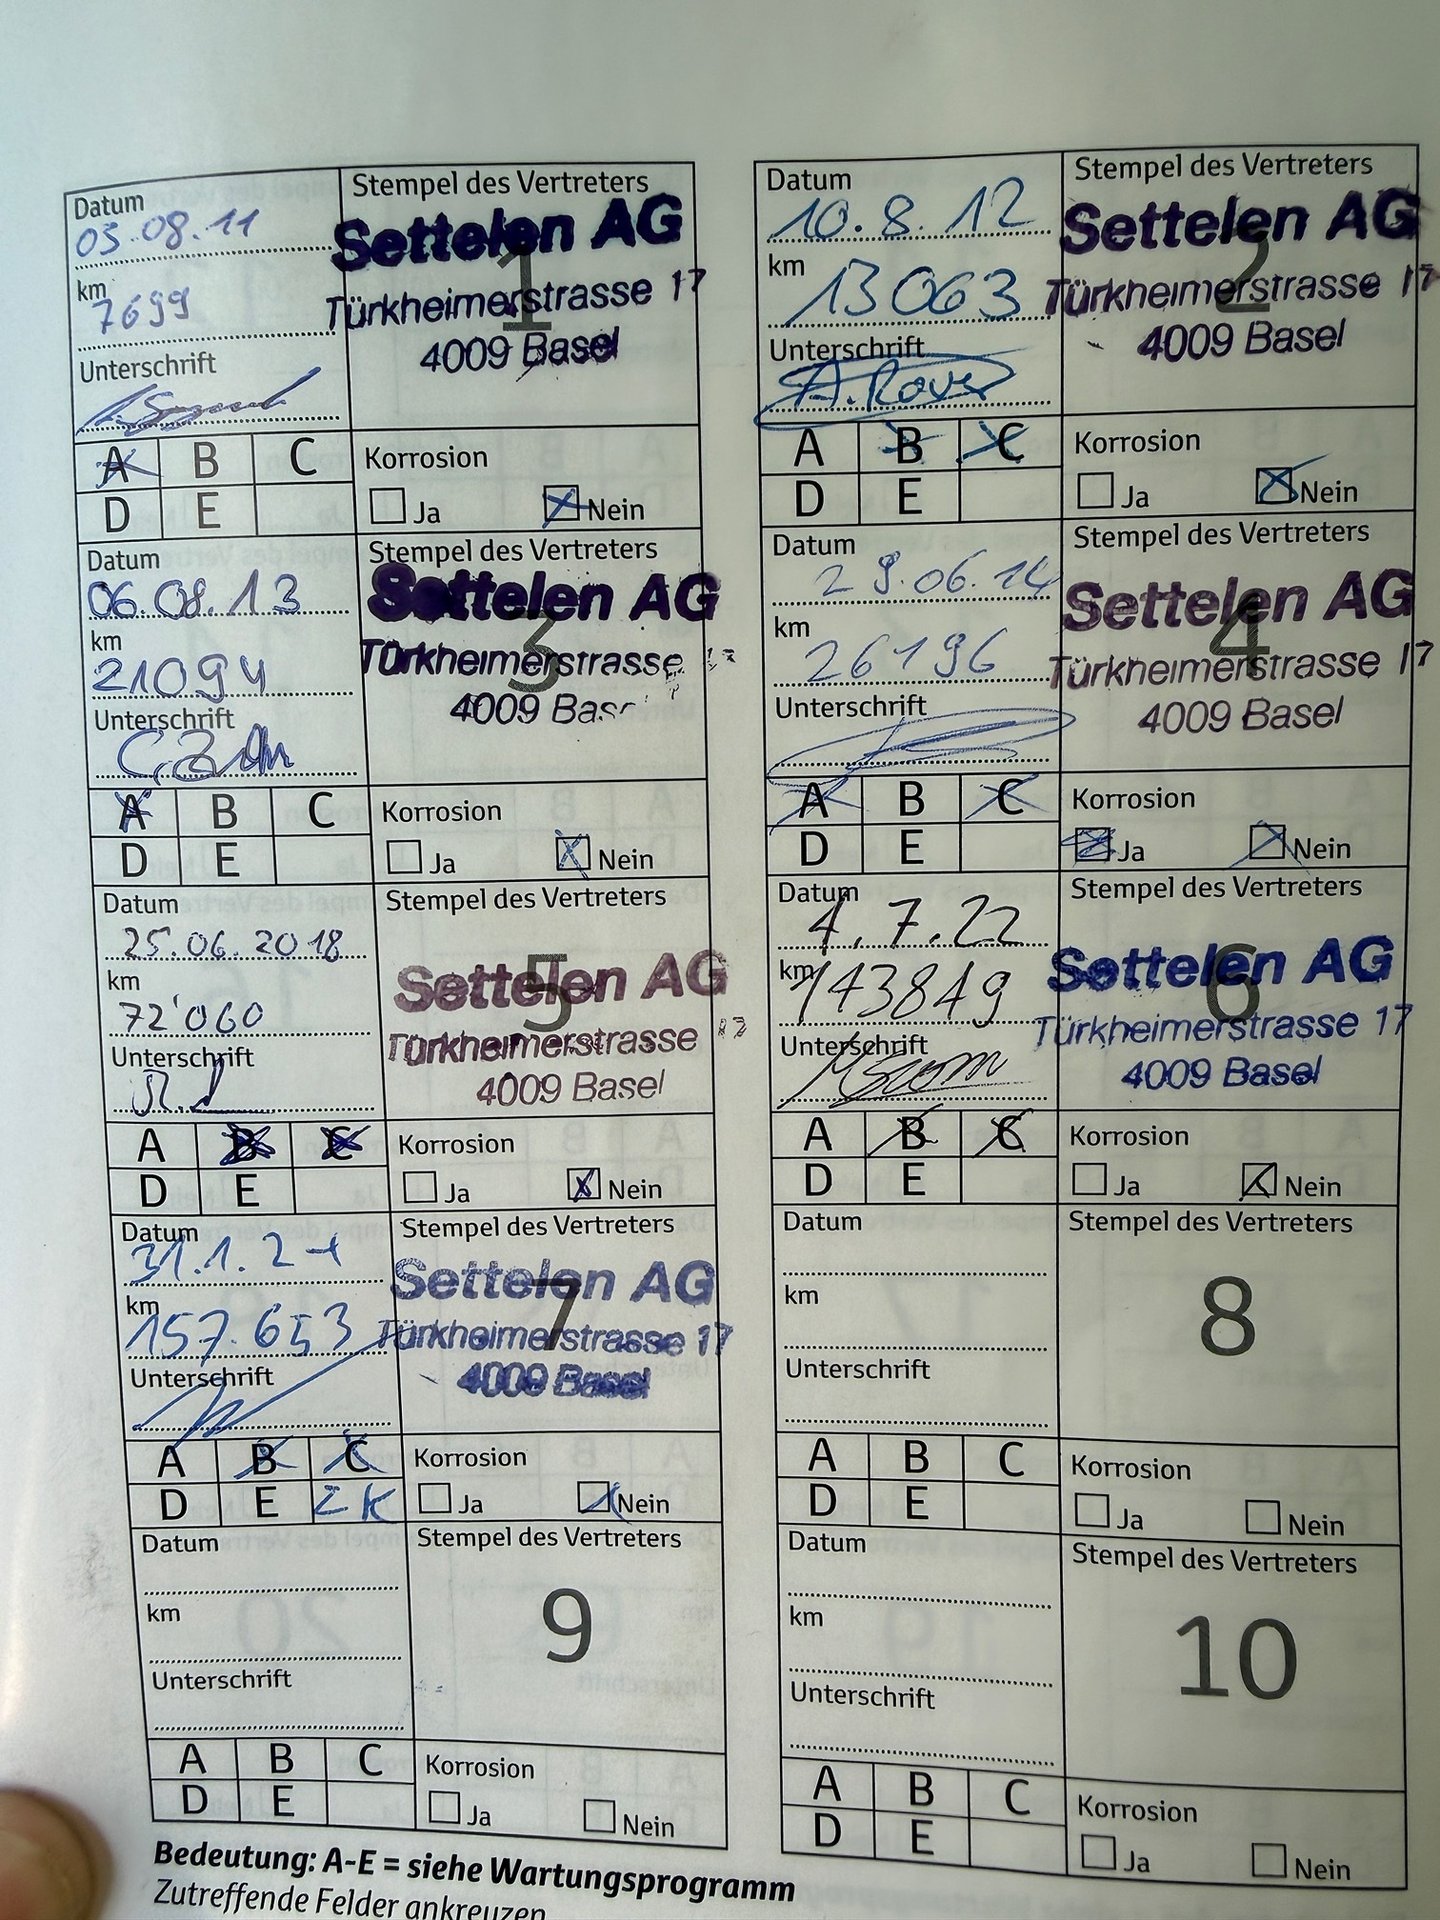 Datum
03.08.11
km
7699
Unterschrift
Stempel des Vertreters
1
Settelen AG
Türkheimerstrasse 17
4009 Basel
A B C
D E
Korrosion
Ja Nein
Datum
10.8.12
km
13063
Unterschrift
Stempel des Vertreters
2
Settelen AG
Türkheimerstrasse 17
4009 Basel
A B C
D E
Korrosion
Ja Nein
Datum
06.08.13
km
21094
Unterschrift
Stempel des Vertreters
3
Settelen AG
Türkheimerstrasse 17
4009 Basel
A B C
D E
Korrosion
Ja Nein
Datum
29.06.14
km
26196
Unterschrift
Stempel des Vertreters
4
Settelen AG
Türkheimerstrasse 17
4009 Basel
A B C
D E
Korrosion
Ja Nein
Datum
25.06.2018
km
72'060
Unterschrift
Stempel des Vertreters
5
Settelen AG
Türkheimerstrasse 17
4009 Basel
A B C
D E
Korrosion
Ja Nein
Datum
4.7.22
km
143849
Unterschrift
Stempel des Vertreters
6
Settelen AG
Türkheimerstrasse 17
4009 Basel
A B C
D E
Korrosion
Ja Nein
Datum
km
157.653
Unterschrift
Stempel des Vertreters
7
Settelen AG
Türkheimerstrasse 17
4009 Basel
A B C
D E ZK
Korrosion
Ja Nein
Datum
km
Unterschrift
Stempel des Vertreters
8
A B C
D E
Korrosion
Ja Nein
Datum
km
Unterschrift
Stempel des Vertreters
9
A B C
D E
Korrosion
Ja Nein
Datum
km
Unterschrift
Stempel des Vertreters
10
A B C
D E
Korrosion
Ja Nein
Bedeutung: A-E = siehe Wartungsprogramm
Zutreffende Felder ankreuzen